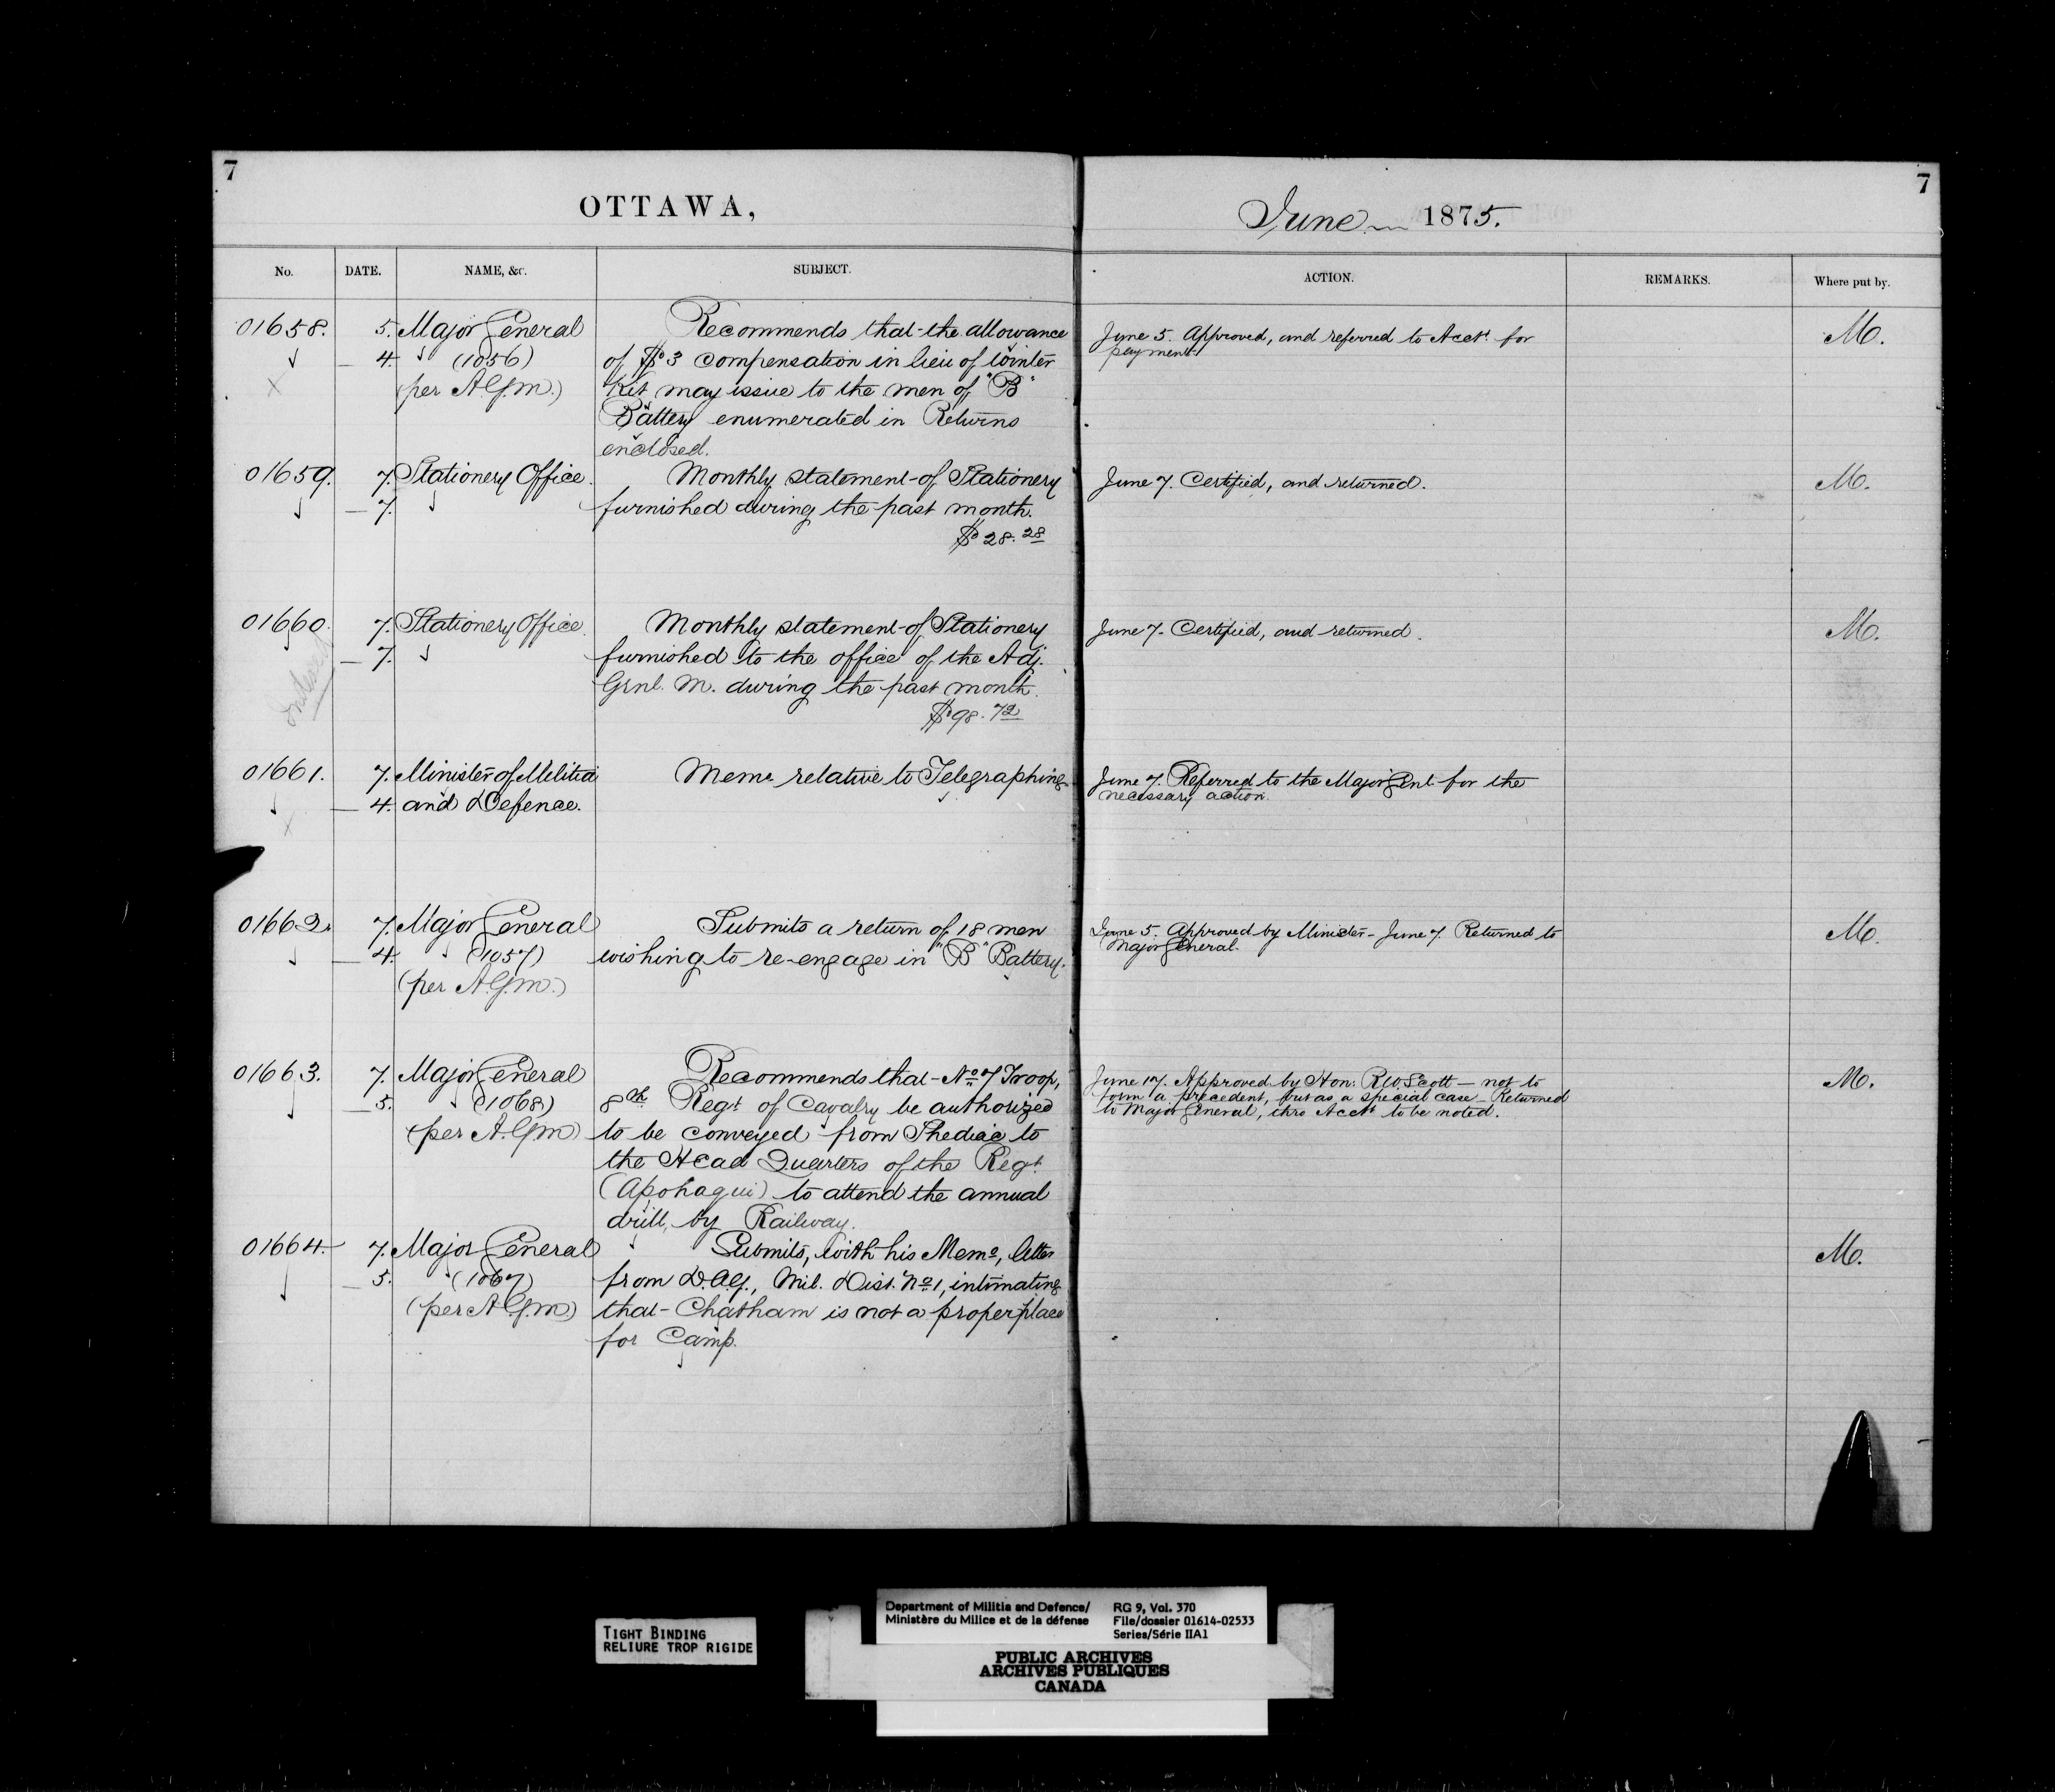 7
OTTAWA,
No. DATE. NAME, &c. SUBJECT.
01658. 5. Major General Recommends that the allowance
4. (1056) of $3 compensation in lieu of Winter
(per A.G.M.) Kit may issue to the men of "B"
Battery enumerated in Returns
enclosed.
01659. 7. Stationery Office. Monthly statement of Stationery
7. furnished during the past month.
$28.28
01660. 7. Stationery Office. Monthly statement of Stationery
7. furnished to the office of the Adj.
Genl. M. during the past month.
$98.72
01661. 7. Minister of Militia Memo relative to Telegraphing
4. and Defence.
01662. 7. Major General Submits a return of 18 men
4. (1057) wishing to re-engage in "B" Battery.
(per A.G.M.)
01663. 7. Major General Recommends that No 7 Troop,
5. (1068) 8th Regt of Cavalry be authorized
(per A.G.M) to be conveyed from Shediac to
the Head Quarters of the Regt
(Apohaqui) to attend the annual
drill, by Railway.
01664. 7. Major General Submits, with his Memo, letter
5. (1067) from D.A.G., Mil. Dist. No 1, intimating
(per A.G.M) that Chatham is not a proper place
for Camp.
7
June 1875.
ACTION. REMARKS. Where put by.
June 5. Approved, and referred to Acctt for M.
payment.
June 7. Certified, and returned. M.
June 7. Certified, and returned. M.
June 7. Referred to the Major Genl for the
necessary action.
June 5. Approved by Minister - June 7. Returned to M.
Major General.
June 17. Approved by Hon: R W Scott — not to M.
form a precedent, but as a special case — Returned
to Major General, thro Acctt to be noted.
M.
TIGHT BINDING
RELIURE TROP RIGIDE
Department of Militia and Defence/
Ministère du Milice et de la défense
RG 9, Vol. 370
File/dossier 01614-02533
Series/Série IIA1
PUBLIC ARCHIVES
ARCHIVES PUBLIQUES
CANADA